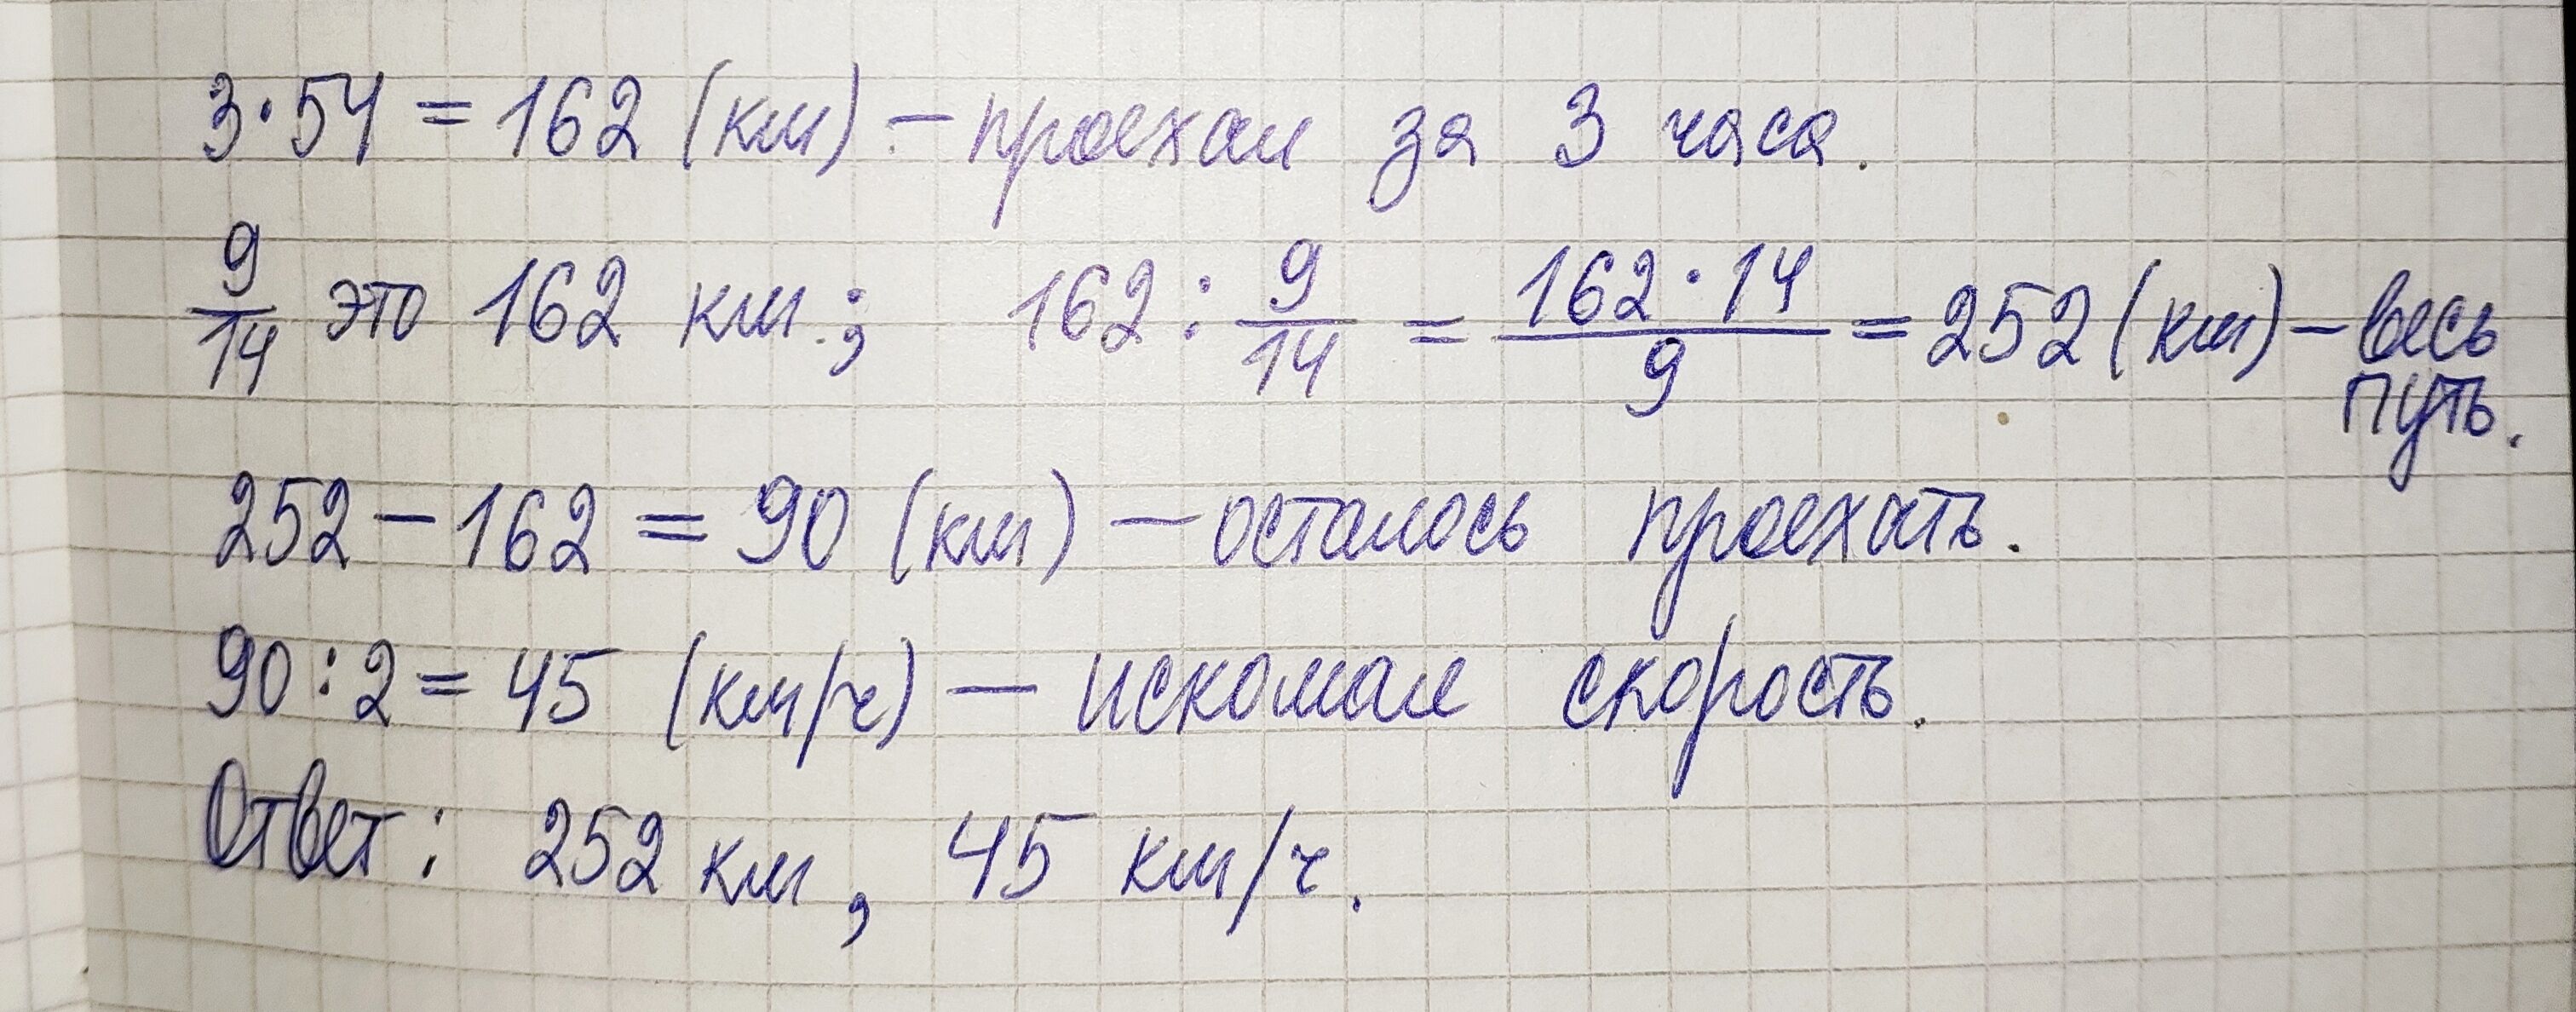 3·54 = 162 (км) – проехал за 3 часа.
9/14 это 162 км.; 162 : 9/14 = 162·14/9 = 252 (км) – весь
путь.
252 – 162 = 90 (км) – осталось проехать.
90 : 2 = 45 (км/ч) – искомая скорость.
Ответ: 252 км, 45 км/ч.